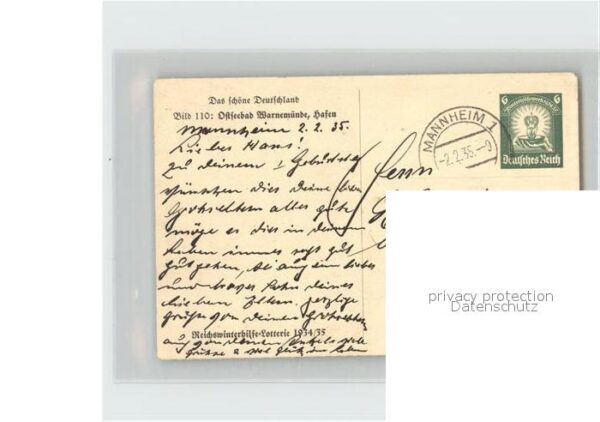 Das schöne Deutschland
Bild 110: Ostseebad Warnemünde, Hafen
Mannheim 2.2.35.
Liebes Hans!
Zu Deinem 1 Geburtstag
wünschen dies Deine lieben
Gotseltern alles gute
möge es dies in Deinem
Leben immer recht gut
gut gehen, sei auf ein liebes
und braves Sohn Deines
lieben Eltern. herzlige
grüße von Deinen Gotseltern
Reichswinterhilfe-Lotterie 1934/35
auf von Deinem
grüsse
Herrn
MANNHEIM 1
-2.2.35.-9
6 6
Deutsches Reich
privacy protection
Datenschutz